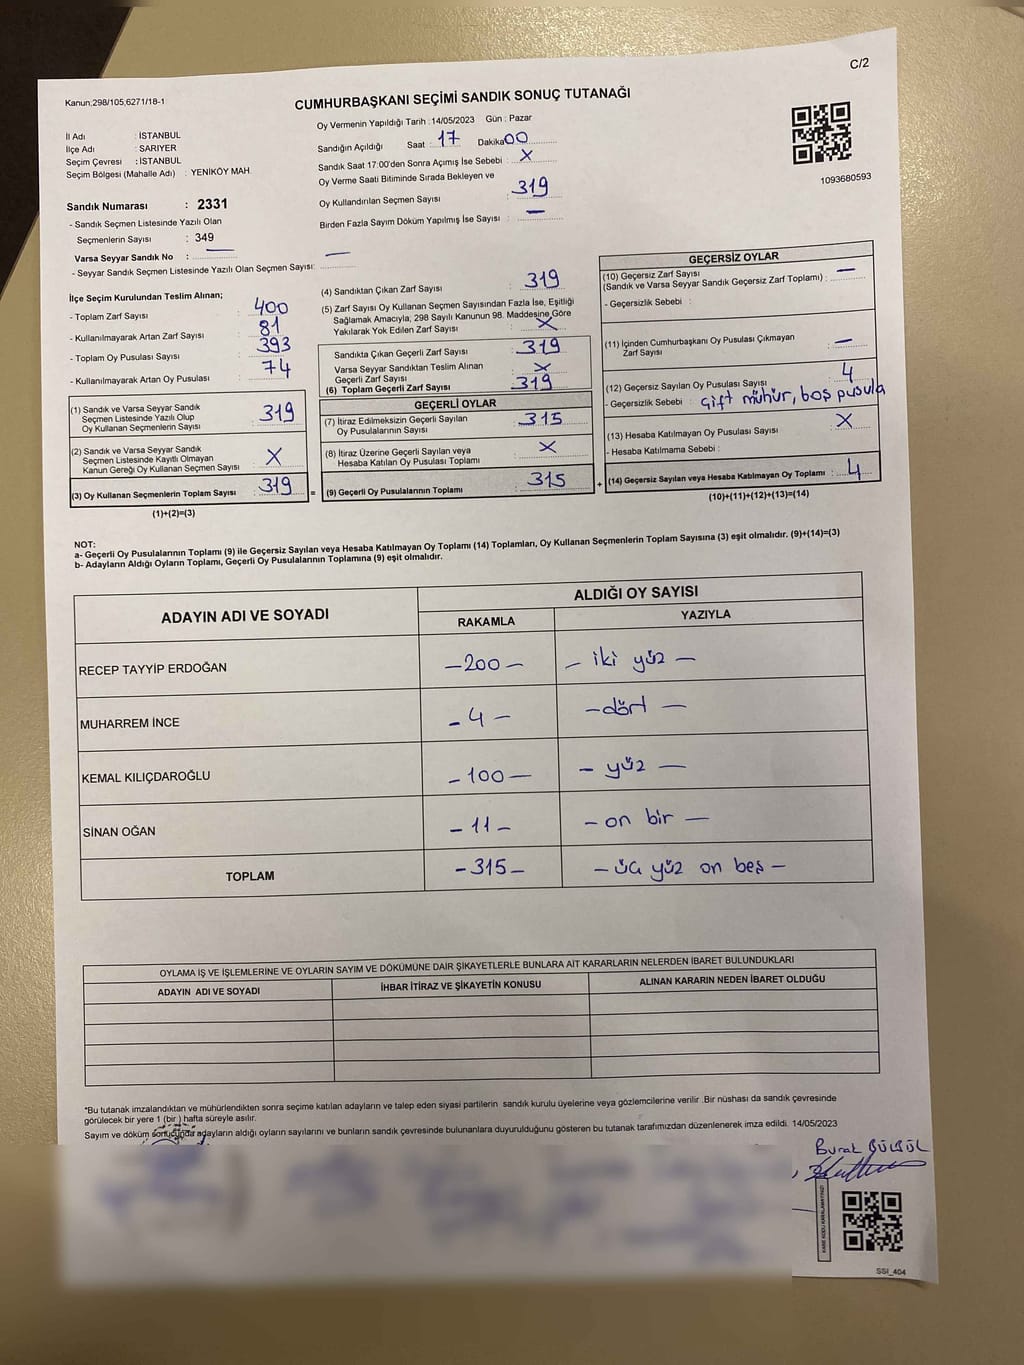 C/2
Kanun:298/105,6271/18-1
CUMHURBAŞKANI SEÇİMİ SANDIK SONUÇ TUTANAĞI
İl Adı : İSTANBUL
İlçe Adı : SARIYER
Seçim Çevresi : İSTANBUL
Seçim Bölgesi (Mahalle Adı) : YENİKÖY MAH.
Sandık Numarası : 2331
- Sandık Seçmen Listesinde Yazılı Olan
Seçmenlerin Sayısı : 349
Varsa Seyyar Sandık No : —
- Seyyar Sandık Seçmen Listesinde Yazılı Olan Seçmen Sayısı: —
Oy Vermenin Yapıldığı Tarih :14/05/2023 Gün : Pazar
Sandığın Açıldığı Saat : 17 Dakika 00
Sandık Saat 17:00'den Sonra Açımış İse Sebebi : X
Oy Verme Saati Bitiminde Sırada Bekleyen ve
Oy Kullandırılan Seçmen Sayısı : 319
Birden Fazla Sayım Döküm Yapılmış İse Sayısı : —
1093680593
İlçe Seçim Kurulundan Teslim Alınan;
- Toplam Zarf Sayısı : 400
- Kullanılmayarak Artan Zarf Sayısı : 81
- Toplam Oy Pusulası Sayısı : 393
- Kullanılmayarak Artan Oy Pusulası : 74
(1) Sandık ve Varsa Seyyar Sandık
Seçmen Listesinde Yazılı Olup
Oy Kullanan Seçmenlerin Sayısı : 319
(2) Sandık ve Varsa Seyyar Sandık
Seçmen Listesinde Kayıtlı Olmayan
Kanun Gereği Oy Kullanan Seçmen Sayısı : X
(3) Oy Kullanan Seçmenlerin Toplam Sayısı : 319 =
(1)+(2)=(3)
(4) Sandıktan Çıkan Zarf Sayısı : 319
(5) Zarf Sayısı Oy Kullanan Seçmen Sayısından Fazla İse, Eşitliği
Sağlamak Amacıyla, 298 Sayılı Kanunun 98. Maddesine Göre
Yakılarak Yok Edilen Zarf Sayısı : X
Sandıkta Çıkan Geçerli Zarf Sayısı : 319
Varsa Seyyar Sandıktan Teslim Alınan
Geçerli Zarf Sayısı : X
(6) Toplam Geçerli Zarf Sayısı : 319
GEÇERLİ OYLAR
(7) İtiraz Edilmeksizin Geçerli Sayılan
Oy Pusulalarının Sayısı : 315
(8) İtiraz Üzerine Geçerli Sayılan veya
Hesaba Katılan Oy Pusulası Toplamı : X
(9) Geçerli Oy Pusulalarının Toplamı : 315 +
GEÇERSİZ OYLAR
(10) Geçersiz Zarf Sayısı
(Sandık ve Varsa Seyyar Sandık Geçersiz Zarf Toplamı) : —
- Geçersizlik Sebebi :
(11) İçinden Cumhurbaşkanı Oy Pusulası Çıkmayan
Zarf Sayısı : —
(12) Geçersiz Sayılan Oy Pusulası Sayısı : 4
- Geçersizlik Sebebi : Çift mühür, boş pusula
(13) Hesaba Katılmayan Oy Pusulası Sayısı : X
- Hesaba Katılmama Sebebi :
(14) Geçersiz Sayılan veya Hesaba Katılmayan Oy Toplamı : 4
(10)+(11)+(12)+(13)=(14)
NOT:
a- Geçerli Oy Pusulalarının Toplamı (9) ile Geçersiz Sayılan veya Hesaba Katılmayan Oy Toplamı (14) Toplamları, Oy Kullanan Seçmenlerin Toplam Sayısına (3) eşit olmalıdır. (9)+(14)=(3)
b- Adayların Aldığı Oyların Toplamı, Geçerli Oy Pusulalarının Toplamına (9) eşit olmalıdır.
ADAYIN ADI VE SOYADI ALDIĞI OY SAYISI
RAKAMLA YAZIYLA
RECEP TAYYİP ERDOĞAN —200— — iki yüz —
MUHARREM İNCE — 4 — — dört —
KEMAL KILIÇDAROĞLU — 100 — — yüz —
SİNAN OĞAN — 11 — — on bir —
TOPLAM — 315 — — üç yüz on beş —
OYLAMA İŞ VE İŞLEMLERİNE VE OYLARIN SAYIM VE DÖKÜMÜNE DAİR ŞİKAYETLERLE BUNLARA AİT KARARLARIN NELERDEN İBARET BULUNDUKLARI
ADAYIN ADI VE SOYADI İHBAR İTİRAZ VE ŞİKAYETİN KONUSU ALINAN KARARIN NEDEN İBARET OLDUĞU
*Bu tutanak imzalandıktan ve mühürlendikten sonra seçime katılan adayların ve talep eden siyasi partilerin sandık kurulu üyelerine veya gözlemcilerine verilir .Bir nüshası da sandık çevresinde
görülecek bir yere 1 (bir ) hafta süreyle asılır.
Sayım ve döküm sonucunda adayların aldığı oyların sayılarını ve bunların sandık çevresinde bulunanlara duyurulduğunu gösteren bu tutanak tarafımızdan düzenlenerek imza edildi. 14/05/2023
Burak BÜLBÜL
SSI_404